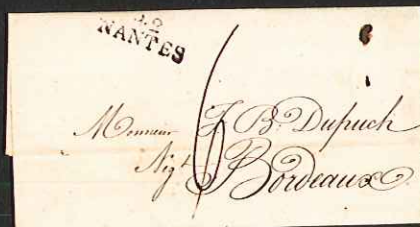 NANTES
6
Monsieur J B Dupuch
Nég.t
Bordeaux